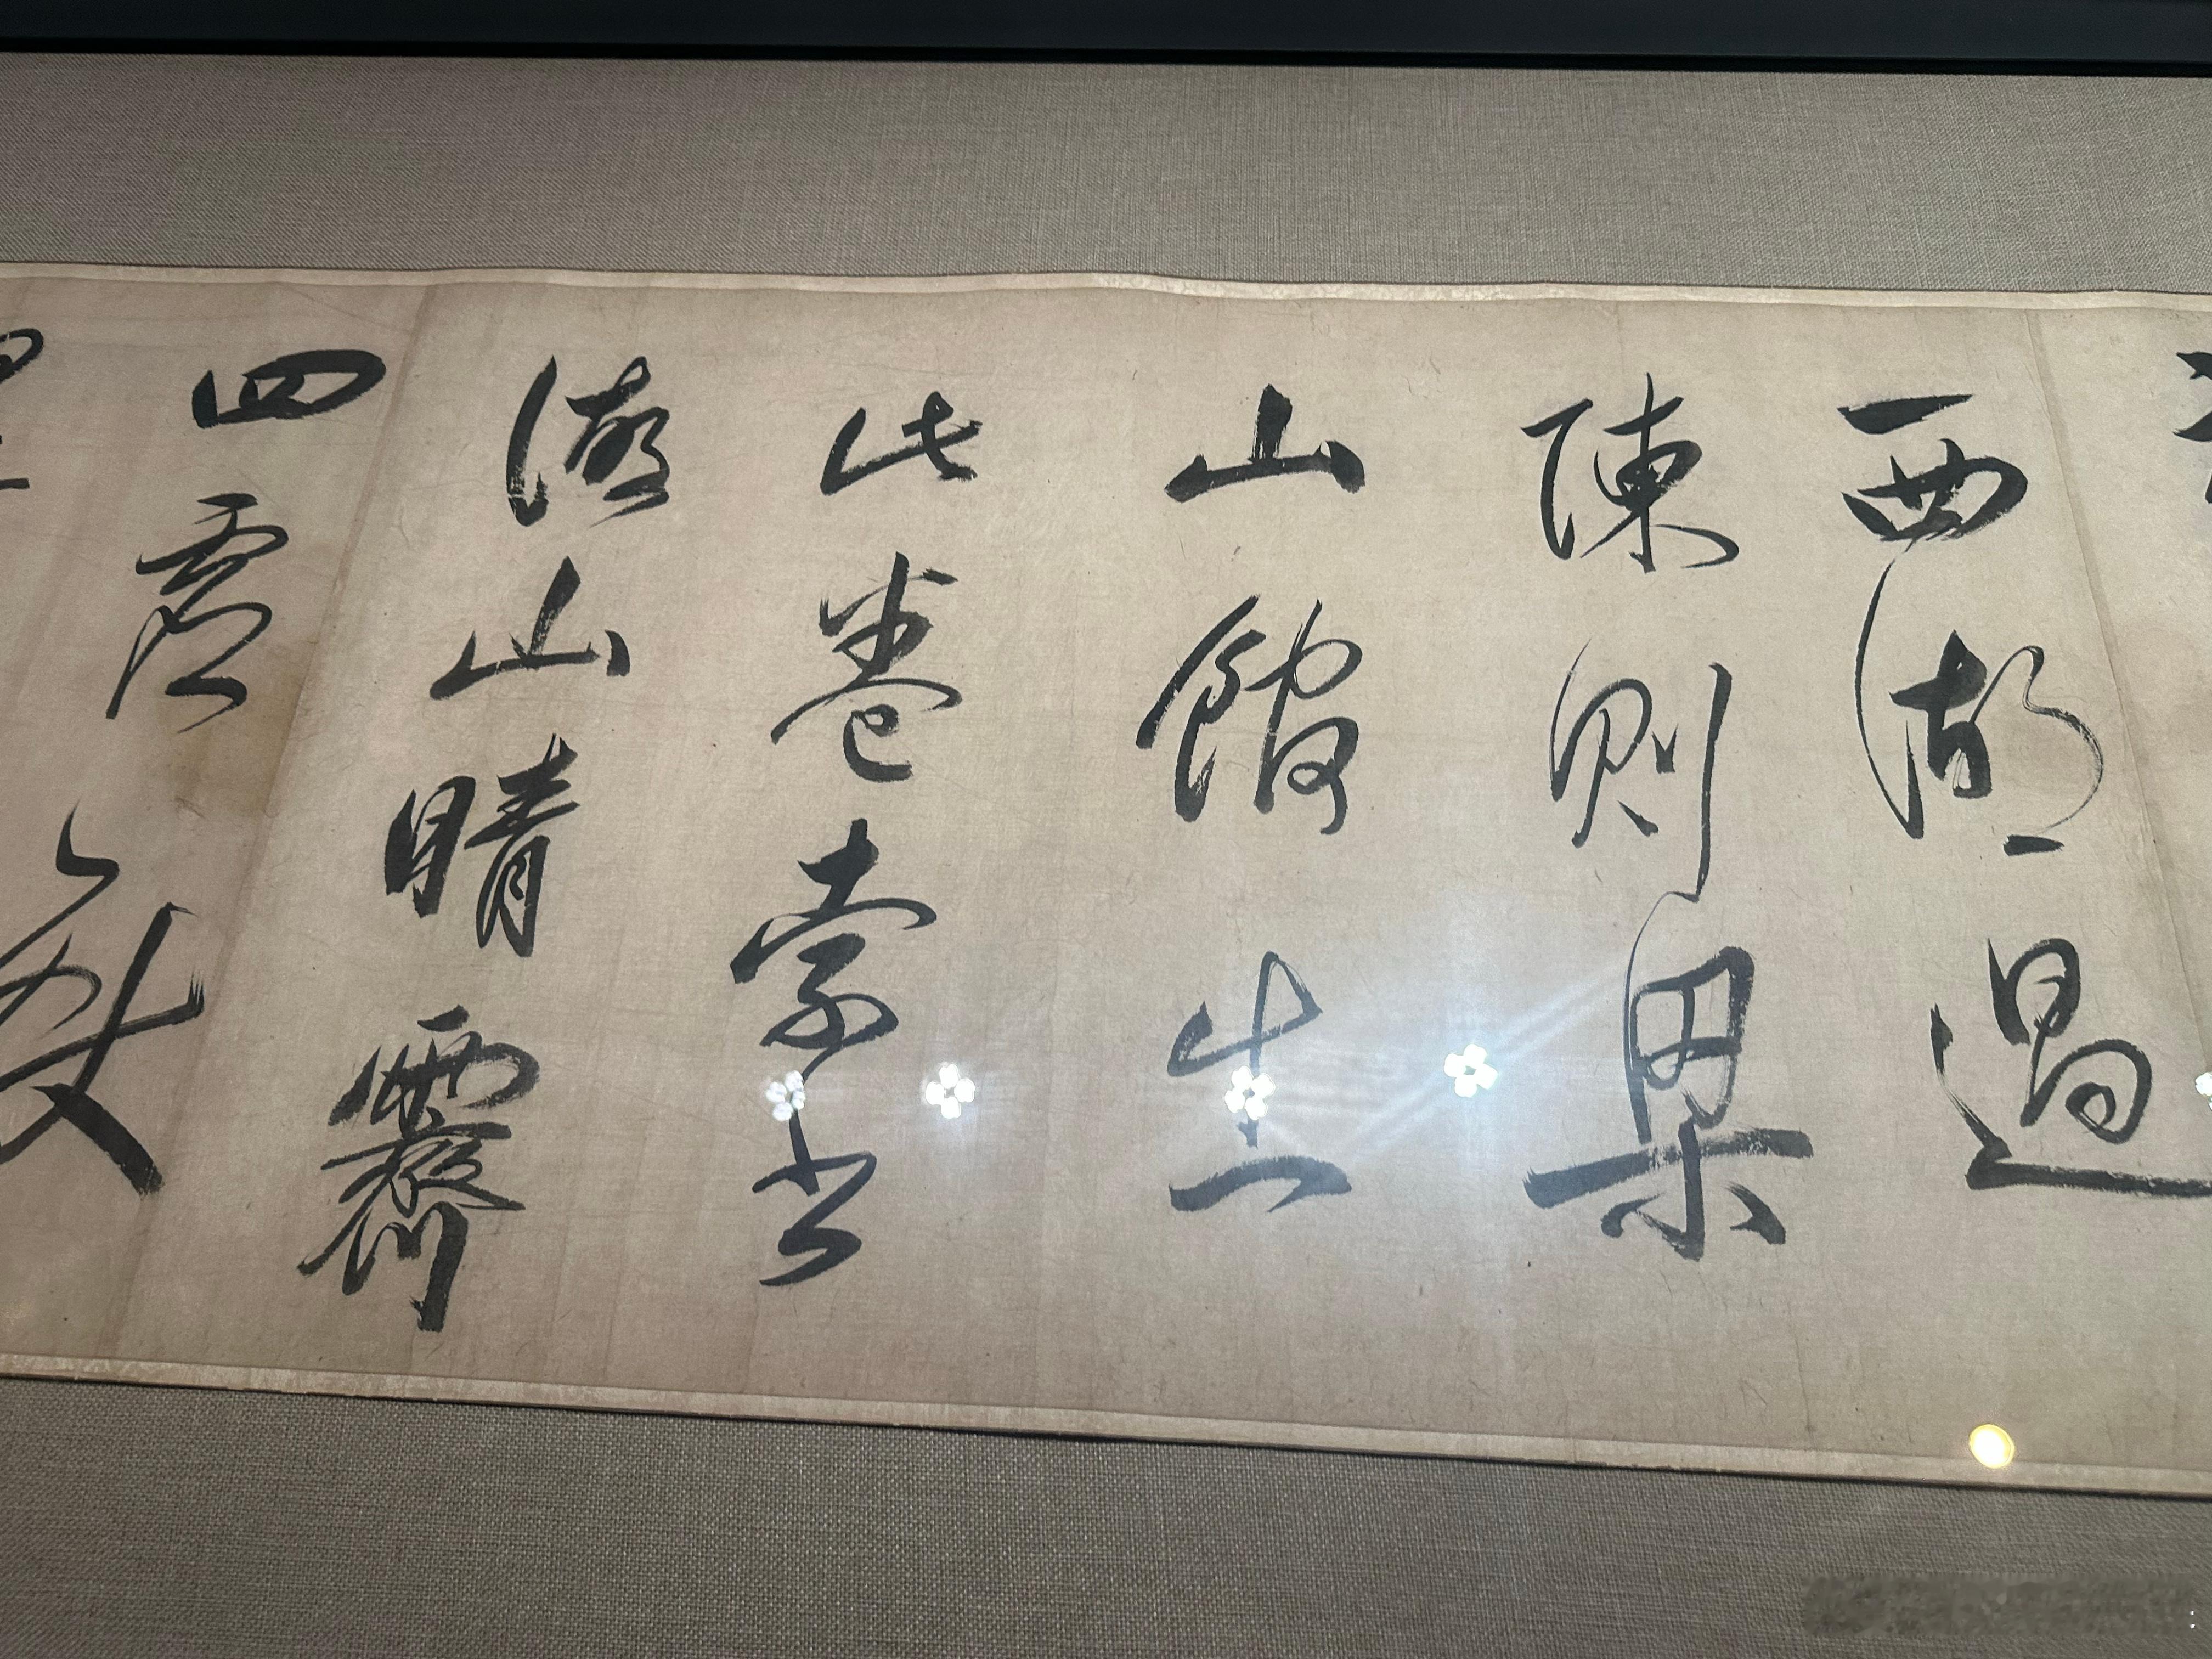 西湖過
陳則梁
山館出
此卷索書
湖山晴霽
四